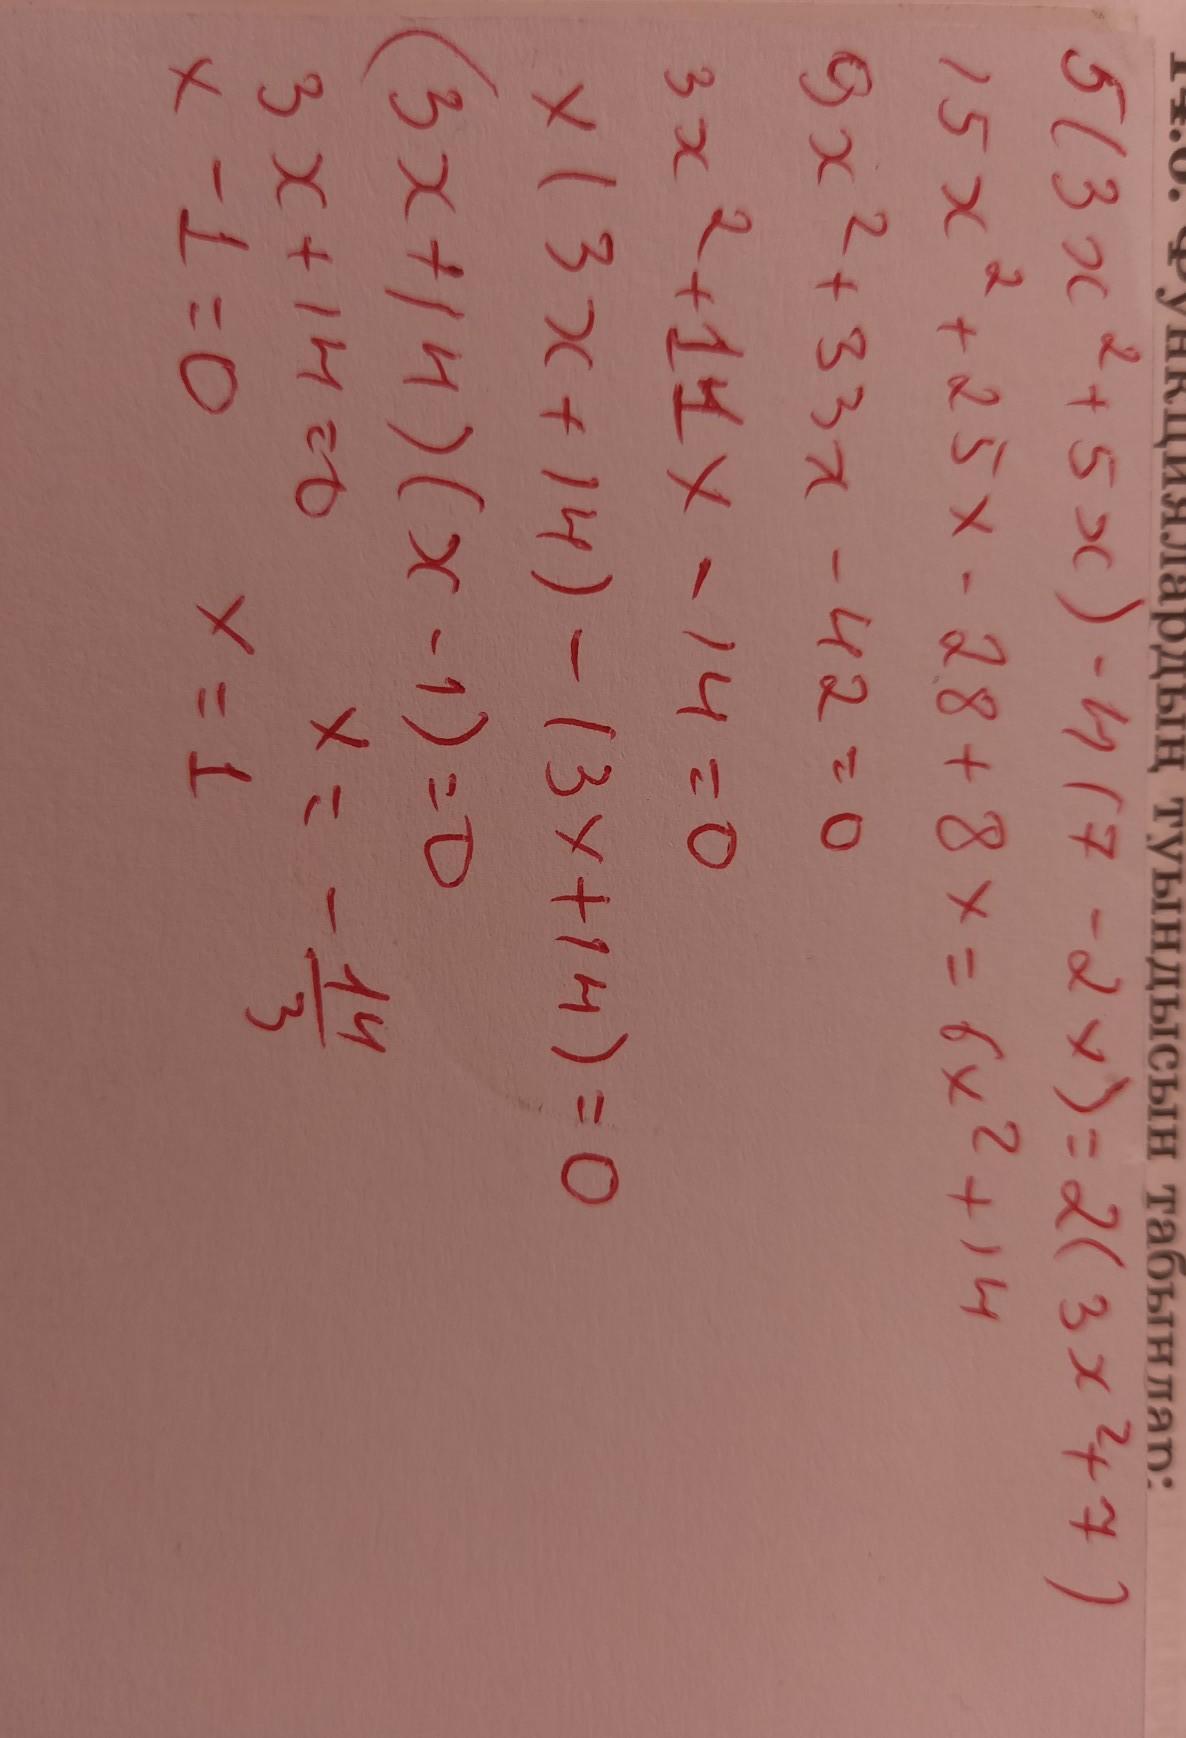 14.6. Функциялардың туындысын табыңдар:
5(3x²+5x)-4(7-2x)=2(3x²+7)
15x²+25x-28+8x=6x²+14
9x²+33x-42=0
3x²+11x-14=0
x(3x+14)-(3x+14)=0
(3x+14)(x-1)=0
3x+14=0 x=-14/3
x-1=0 x=1